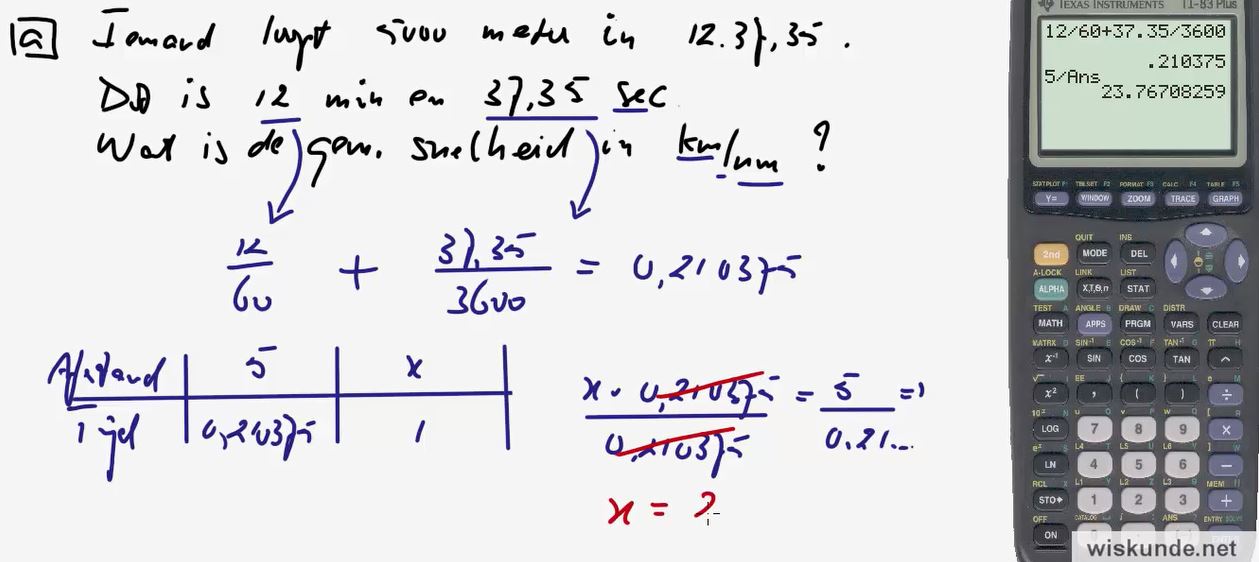 a Iemand loopt 5000 meter in 12.37,35.
Dit is 12 min en 37,35 sec
Wat is de gem. snelheid in km/uur ?
12/60 + 37,35/3600 = 0,210375
Afstand 5 x
Tijd 0,210375 1
x · 0,210375 / 0,210375 = 5 / 0,21... =>
x = 2
TEXAS INSTRUMENTS TI-83 Plus
12/60+37.35/3600
.210375
5/Ans
23.76708259
STAT PLOT F1 TBLSET F2 FORMAT F3 CALC F4 TABLE F5
Y= WINDOW ZOOM TRACE GRAPH
QUIT INS
2nd MODE DEL
A-LOCK LINK LIST
ALPHA X,T,Θ,n STAT
TEST A ANGLE B DRAW C DISTR
MATH APPS PRGM VARS CLEAR
MATRX D SIN⁻¹ E COS⁻¹ F TAN⁻¹ G π H
x⁻¹ SIN COS TAN ^
x² , ( ) ÷
LOG 7 8 9 X
LN 4 5 6 −
RCL X MEM
STO 1 2 3 +
OFF CATALOG ANS ENTRY SOLVE
ON
wiskunde.net